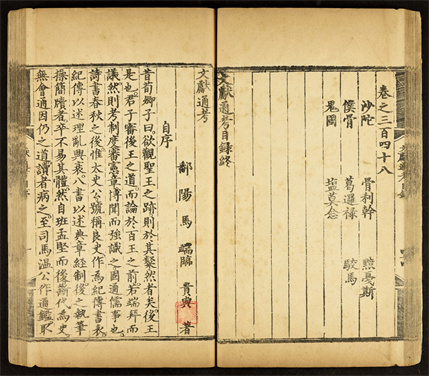 卷之三百四十八
沙陀 骨利幹 黠戛斯
僕骨 葛邏祿 駮馬
鬼國 鹽莫念
文獻通考目錄終
文獻通考
自序
鄱陽馬 端臨 貴與 著
昔荀卿子曰欲觀聖王之跡則於其粲然者矣後王
是也君子審後王之道而論於百王之前若端拜而
議然則考制度審憲章博聞而強識之固通儒事也
詩書春秋之後惟太史公號稱良史作為紀傳書表
紀傳以述理亂興衰八書以述典章經制後之執筆
操簡牘者卒不易其體然自班孟堅而後斷代為史
無會通因仍之道讀者病之至司馬溫公作通鑑取